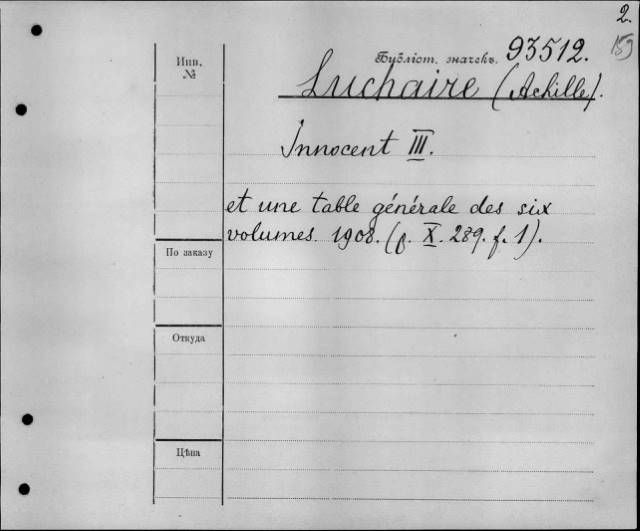 2.
159
Инв.
№
Бубліот. значекъ. 93512.
Luchaire (Achille).
Innocent III.
et une table générale des six
volumes. 1908. (p. X. 289. f. 1).
По заказу
Откуда
Цѣна